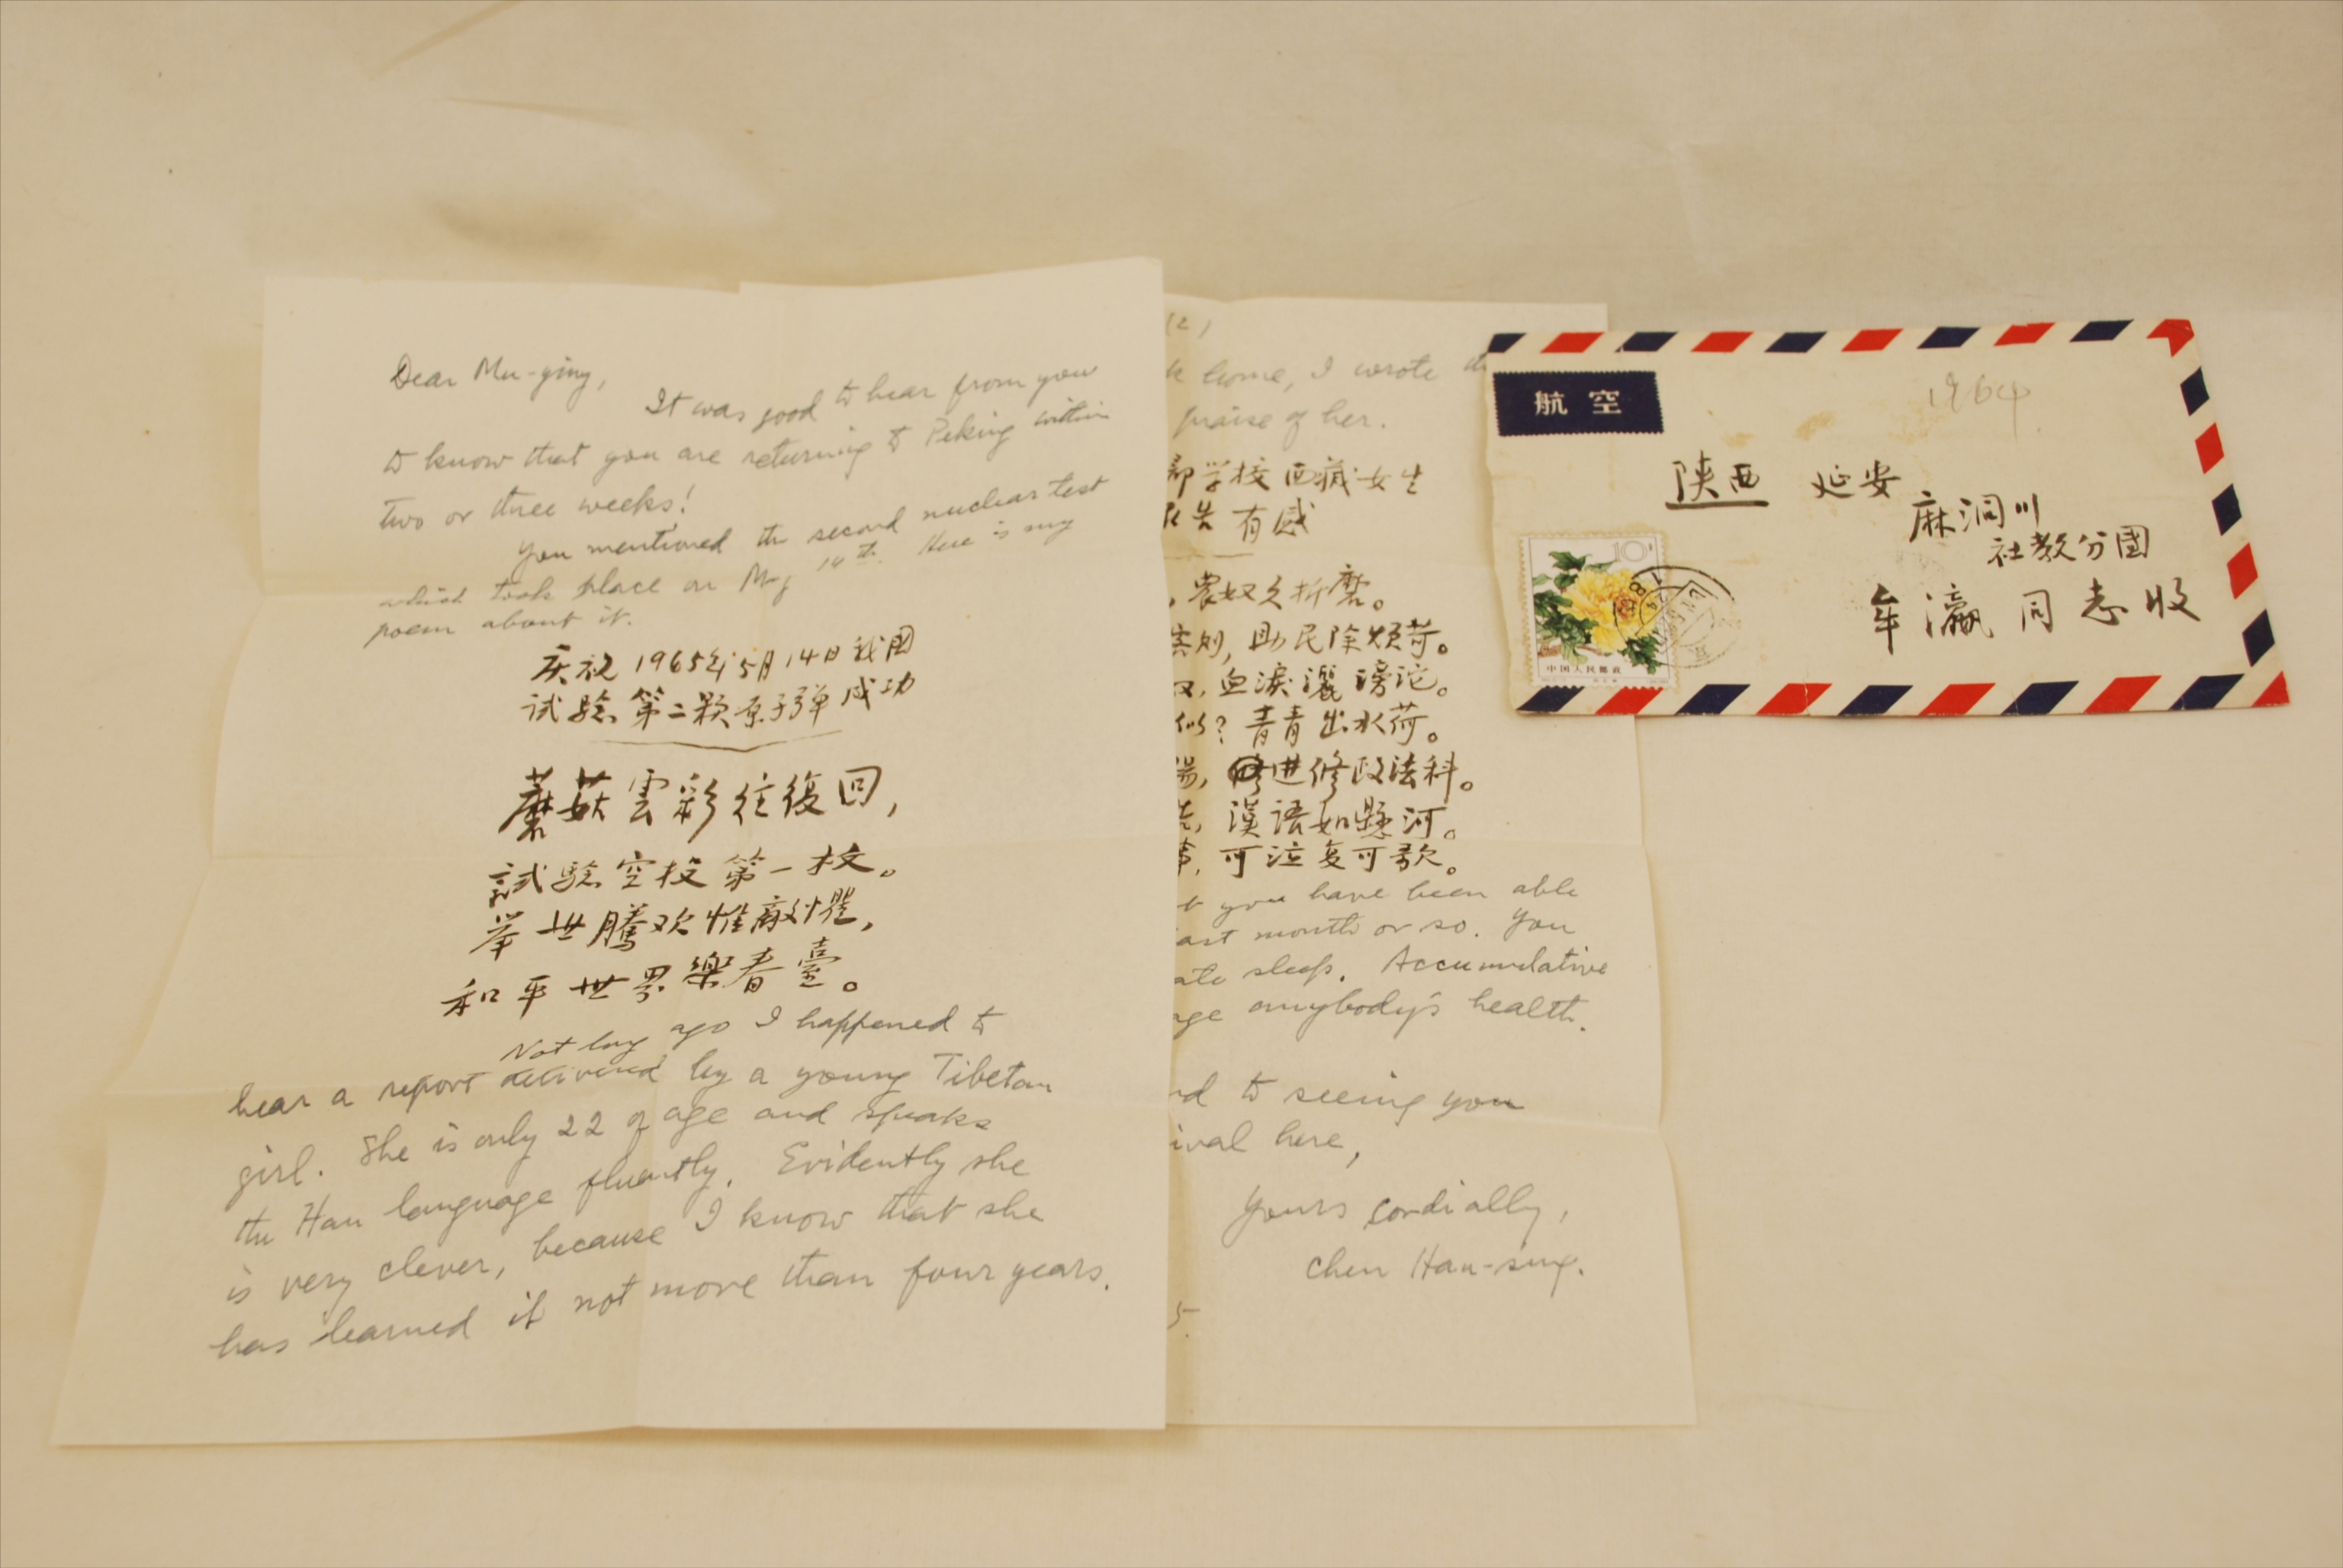 Dear Mu-ying,
It was good to hear from you
to know that you are returning to Peking within
two or three weeks!
You mentioned the second nuclear test
which took place on May 14th. Here is my
poem about it.
庆祝1965年5月14日我国
试验第二颗原子弹成功
蘑菇雲彩往復回,
試驗空投第一枚。
举世騰欢惟敵懼,
和平世界樂春臺。
Not long ago I happened to
hear a report delivered by a young Tibetan
girl. She is only 22 of age and speaks
the Han language fluently. Evidently she
is very clever, because I know that she
has learned it not more than four years.
(2)
home, I wrote
praise of her.
部学校西藏女生
告有感
農奴久折磨。
助民除烦苛。
血淚灑滂沱。
似?青青出水荷。
進修政法科。
漢語如懸河。
事,可泣复可歌。
you have been able
month or so. You
sleep. Accumulative
anybody's health.
to seeing you
here,
Yours cordially,
Chen Han-seng.
5.
航空
1964
陕西 延安
麻洞川
社教分團
牟瀛同志收
10
中国人民邮政